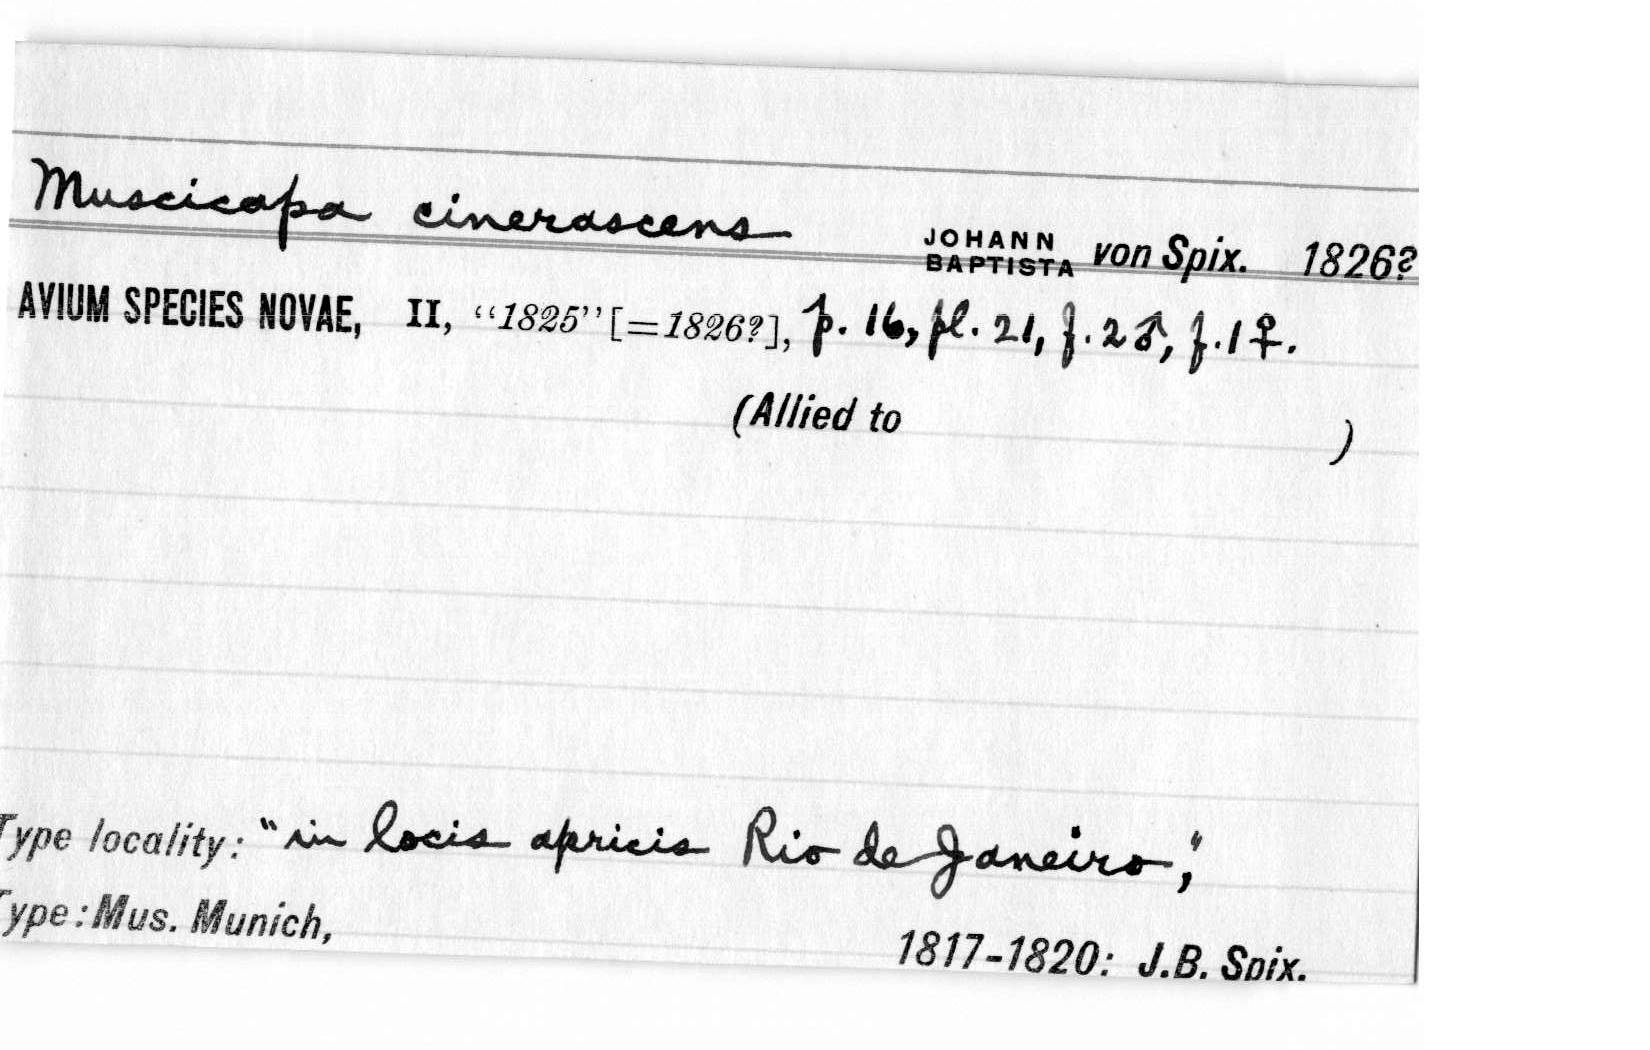 Muscicapa cinerascens JOHANN BAPTISTA von Spix. 1826?
AVIUM SPECIES NOVAE, II, “1825” [=1826?], p. 16, pl. 21, f. 2♂, f. 1♀.
(Allied to )
Type locality: “in locis apricis Rio de Janeiro,”
Type: Mus. Munich,
1817-1820: J.B. Spix.